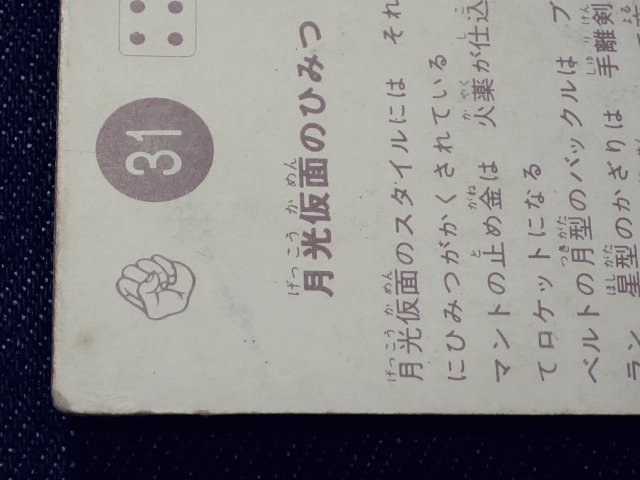 31
月光仮面のひみつ
月光仮面のスタイルには それ
にひみつがかくされている
マントの止め金は 火薬が仕込
てロケットになる
ベルトの月型のバックルは ブ
ラン
星型のかざりは 手離剣